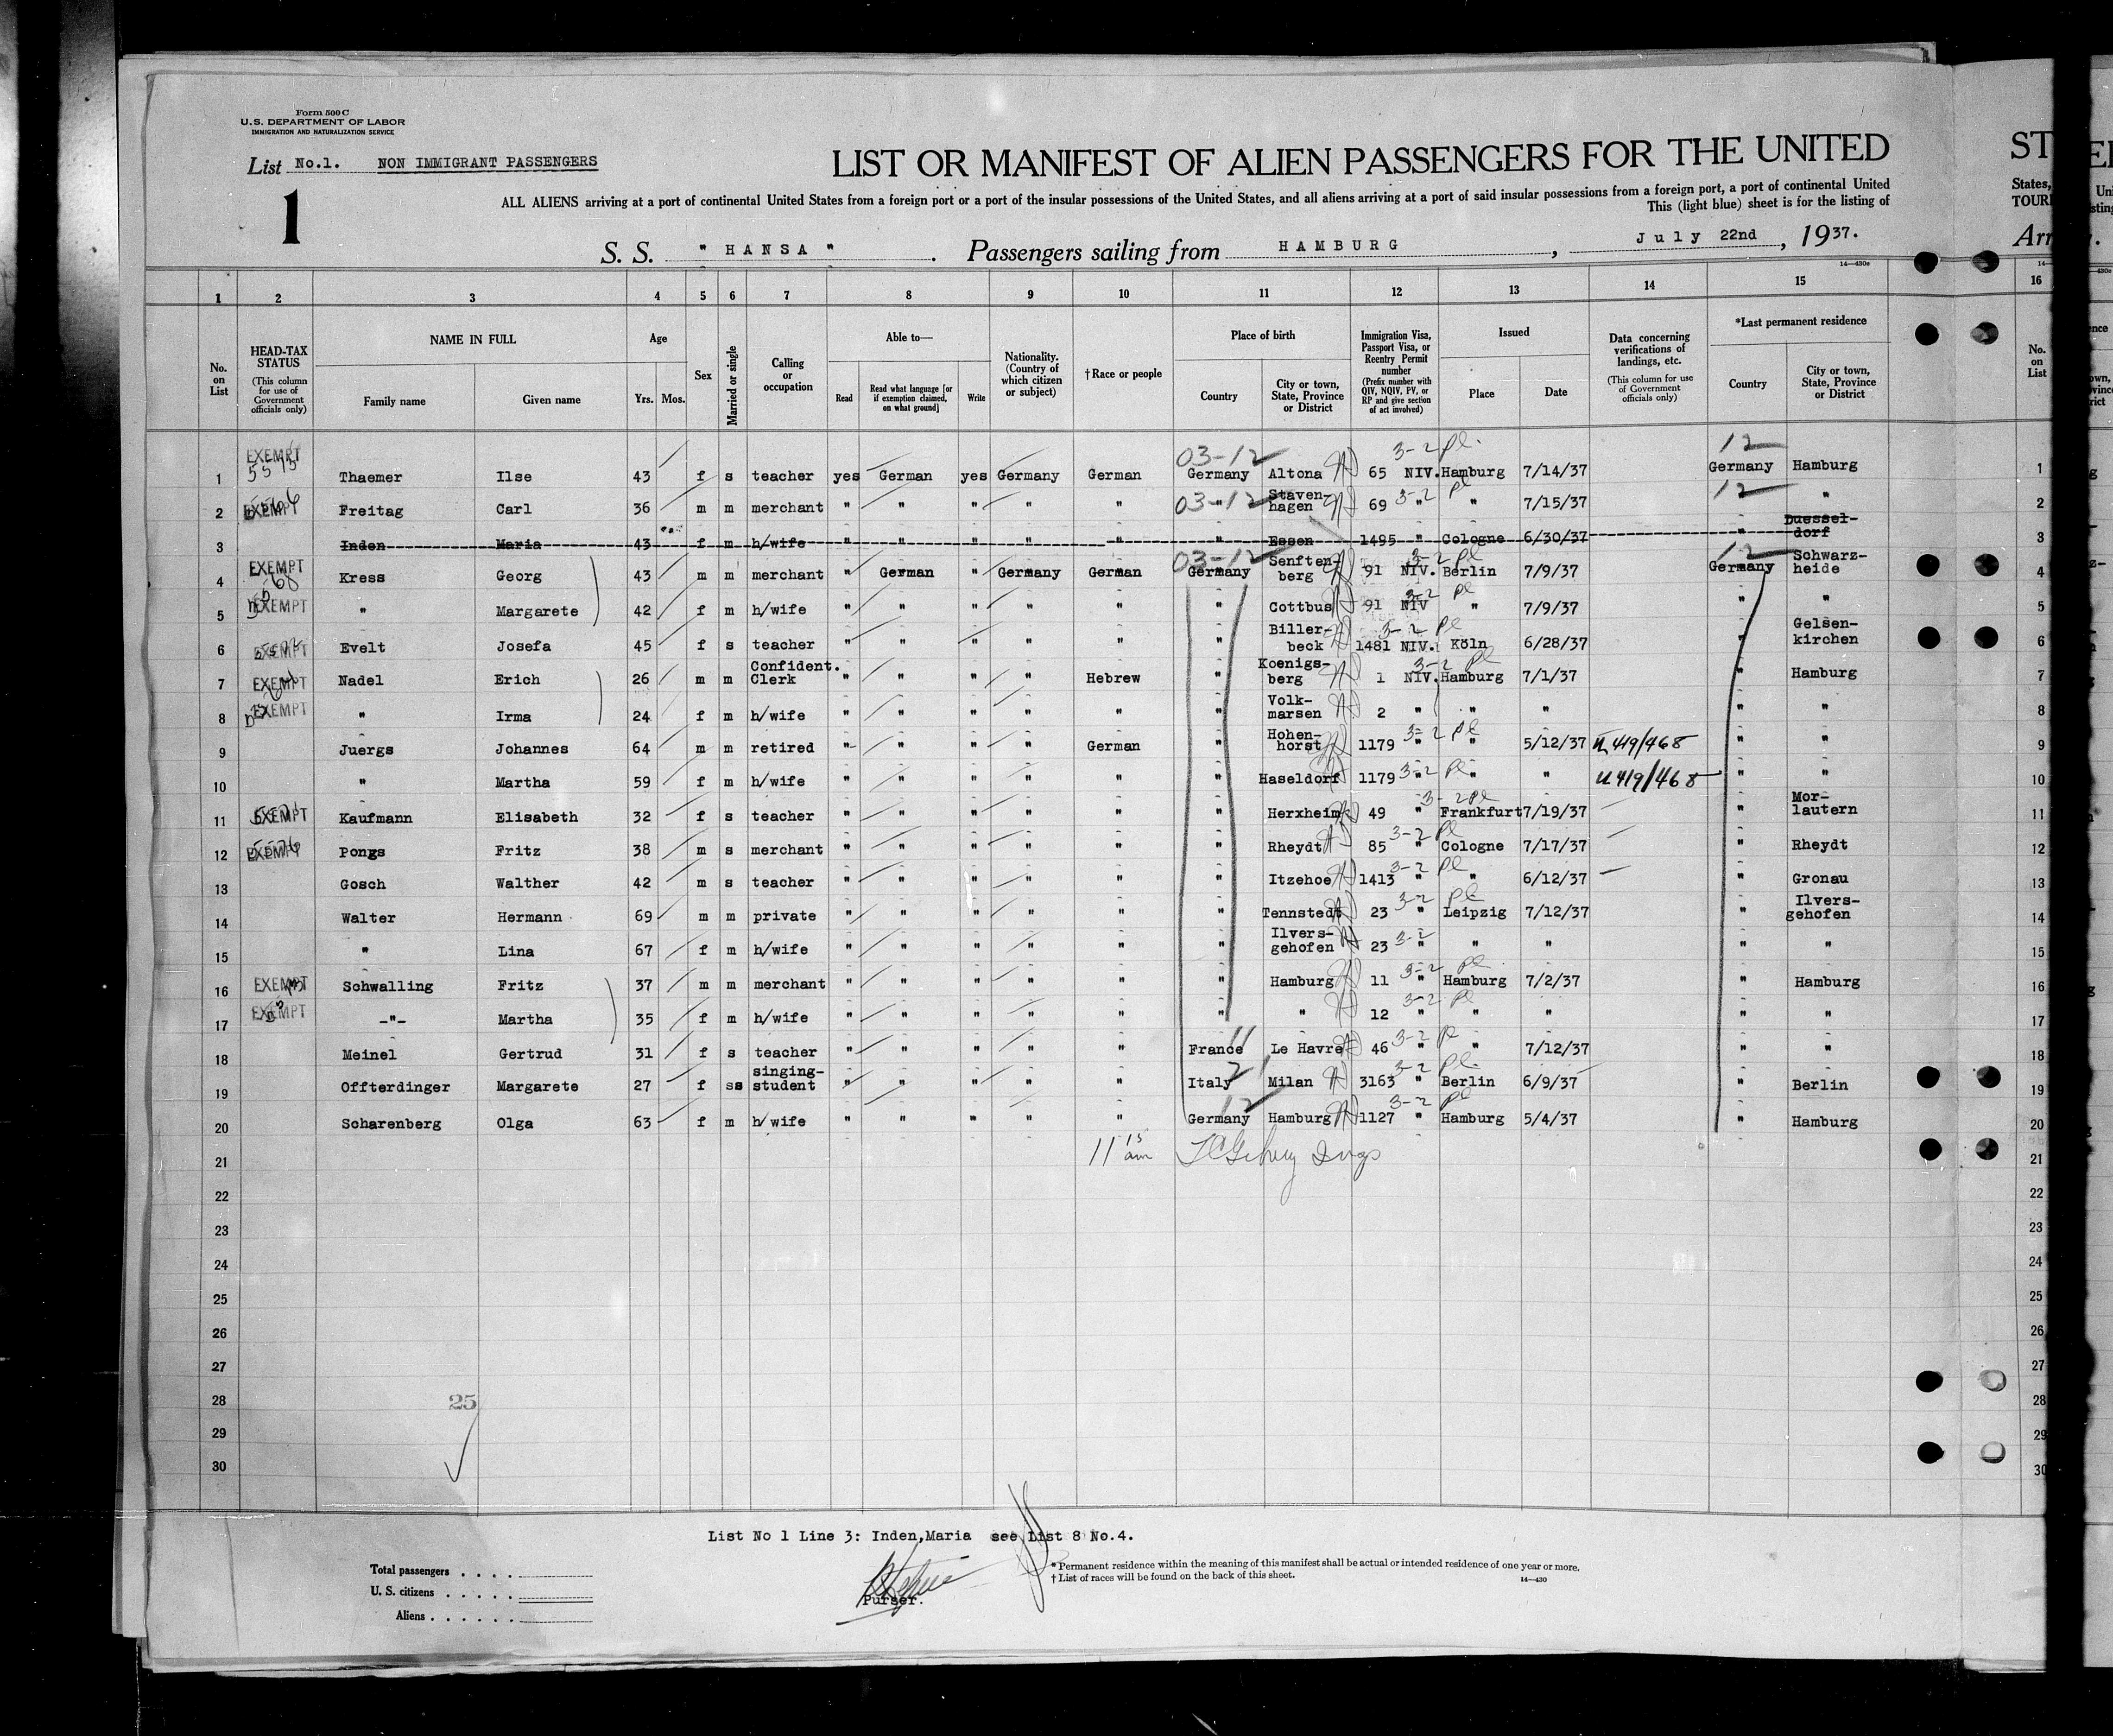 Form 500 C
U.S. DEPARTMENT OF LABOR
IMMIGRATION AND NATURALIZATION SERVICE
List No.1. NON IMMIGRANT PASSENGERS
1
LIST OR MANIFEST OF ALIEN PASSENGERS FOR THE UNITED
ST
ALL ALIENS arriving at a port of continental United States from a foreign port or a port of the insular possessions of the United States, and all aliens arriving at a port of said insular possessions from a foreign port, a port of continental United
States,
This (light blue) sheet is for the listing of
TOUR
S. S. " HANSA " . Passengers sailing from HAMBURG , July 22nd , 1937.
Arr
14—430c
1 2 3 4 5 6 7 8 9 10 11 12 13 14 15 16
No. on List
HEAD-TAX STATUS (This column for use of Government officials only)
NAME IN FULL
Family name Given name
Age
Yrs. Mos.
Sex
Married or single
Calling or occupation
Able to—
Read Read what language [or if exemption claimed, on what ground] Write
Nationality. (Country of which citizen or subject)
†Race or people
Place of birth
Country City or town, State, Province or District
Immigration Visa, Passport Visa, or Reentry Permit number (Prefix number with QIV, NQIV, PV, or RP and give section of act involved)
Issued
Place Date
Data concerning verifications of landings, etc. (This column for use of Government officials only)
*Last permanent residence
Country City or town, State, Province or District
No. on List
1 EXEMPT Thaemer Ilse 43 f s teacher yes German yes Germany German 03-12 Germany Altona 65 NIV. 3-2 pl. Hamburg 7/14/37 12 Germany Hamburg 1
2 EXEMPT Freitag Carl 36 m m merchant " " " " " 03-12 " Staven-hagen 69 3-2 pl " " 7/15/37 12 " 2
3 Inden Maria 43 f m h/wife " " " " " " Essen 1495 " Cologne 6/30/37 " Duessel-dorf 3
4 EXEMPT Kress Georg 43 m m merchant " German " Germany German 03-12 Germany Senften-berg 91 NIV. 3-2 pl Berlin 7/9/37 12 Germany Schwarz-heide 4
5 EXEMPT " Margarete 42 f m h/wife " " " " " " Cottbus 91 NIV 3-2 pl " 7/9/37 " " 5
6 EXEMPT Evelt Josefa 45 f s teacher " " " " " " Biller-beck 1481 NIV. 3-2 pl Köln 6/28/37 " Gelsen-kirchen 6
7 EXEMPT Nadel Erich 26 m m Confident. Clerk " " " " Hebrew " Koenigs-berg 1 NIV. 3-2 pl Hamburg 7/1/37 " Hamburg 7
8 EXEMPT " Irma 24 f m h/wife " " " " " " Volk-marsen 2 " " " " " 8
9 Juergs Johannes 64 m m retired " " " " German " Hohen-horst 1179 3-2 pl " " 5/12/37 419/468 " " 9
10 " Martha 59 f m h/wife " " " " " " Haseldorf 1179 3-2 pl " " " 419/468 " " 10
11 EXEMPT Kaufmann Elisabeth 32 f s teacher " " " " " " Herxheim 49 " 3-2 pl Frankfurt 7/19/37 " Mor-lautern 11
12 EXEMPT Pongs Fritz 38 m s merchant " " " " " " Rheydt 85 " 3-2 pl Cologne 7/17/37 " Rheydt 12
13 Gosch Walther 42 m s teacher " " " " " " Itzehoe 1413 " 3-2 pl " 6/12/37 " Gronau 13
14 Walter Hermann 69 m m private " " " " " " Tennstedt 23 " 3-2 pl Leipzig 7/12/37 " Ilvers-gehofen 14
15 " Lina 67 f m h/wife " " " " " " Ilvers-gehofen 23 3-2 " " " " " 15
16 EXEMPT Schwalling Fritz 37 m m merchant " " " " " " Hamburg 11 " 3-2 pl. Hamburg 7/2/37 " Hamburg 16
17 EXEMPT -"- Martha 35 f m h/wife " " " " " " " 12 " 3-2 pl " " " " 17
18 Meinel Gertrud 31 f s teacher " " " " " France 11 Le Havre 46 " 3-2 pl " 7/12/37 " " 18
19 Offterdinger Margarete 27 f ss singing-student " " " " " Italy 21 Milan 3163 " 3-2 pl. Berlin 6/9/37 " Berlin 19
20 Scharenberg Olga 63 f m h/wife " " " " " Germany 12 Hamburg 1127 " 3-2 pl Hamburg 5/4/37 " Hamburg 20
21 11 15 am 21
22 22
23 23
24 24
25 25
26 26
27 27
28 25 28
29 29
30 30
List No 1 Line 3: Inden,Maria see List 8 No.4.
Total passengers
U. S. citizens
Aliens
Purser.
*Permanent residence within the meaning of this manifest shall be actual or intended residence of one year or more.
†List of races will be found on the back of this sheet.
14—430